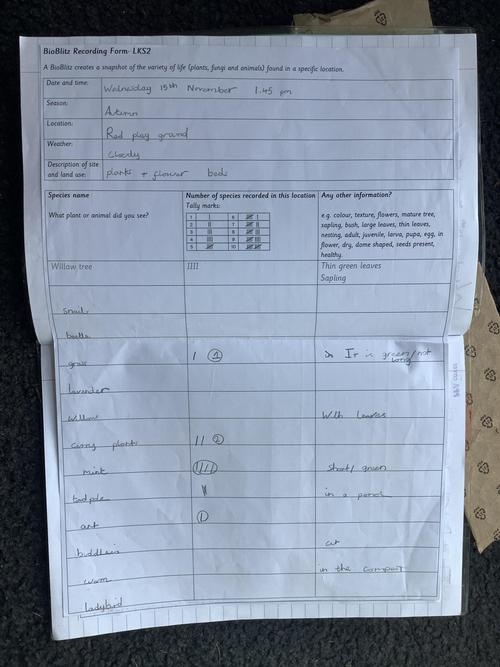 BioBlitz Recording Form- LKS2
A BioBlitz creates a snapshot of the variety of life (plants, fungi and animals) found in a specific location.
Date and time: Wednesday 15th November 1.45 pm
Season: Autumn
Location: Red play ground
Weather: cloudy
Description of site and land use: plants + flower beds
Species name
What plant or animal did you see?
Number of species recorded in this location
Tally marks:
1 | 6 |||| |
2 || 7 |||| ||
3 ||| 8 |||| |||
4 |||| 9 |||| ||||
5 |||| 10 |||| ||||
Any other information?
e.g. colour, texture, flowers, mature tree,
sapling, bush, large leaves, thin leaves,
nesting, adult, juvenile, larva, pupa, egg, in
flower, dry, dome shaped, seeds present,
healthy.
Willow tree IIII Thin green leaves
Sapling
snail
beetle
grass I 1 It is green/not long
lavender
willow With leaves
curry plants II 2
mint IIII short/green
tadpole in a pond
ant I
buddleia cut
worm in the compost
ladybird